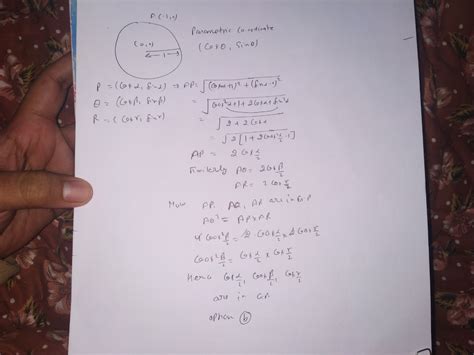 A(-1,0)
Parametric Co-ordinate
(0,0)
(Cosθ, Sinθ)
1
P = (Cosα, Sinα) → AP = √(Cosα+1)² + (Sinα-0)²
Q = (Cosβ, Sinβ) = √Cos²α+1+2Cosα+Sin²α
R = (Cosγ, Sinγ) = √2+2Cosα
= √2[1+2Cos²α/2-1]
AP = 2Cosα/2
Similarly AQ = 2Cosβ/2
AR = 2Cosγ/2
Now AP, AQ, AR are in G.P
AQ² = AP×AR
4Cos²β/2 = 2·Cosα/2 × 2Cosγ/2
Cos²β/2 = Cosα/2 × Cosγ/2
Hence Cosα/2, Cosβ/2, Cosγ/2
are in GP
option (b)